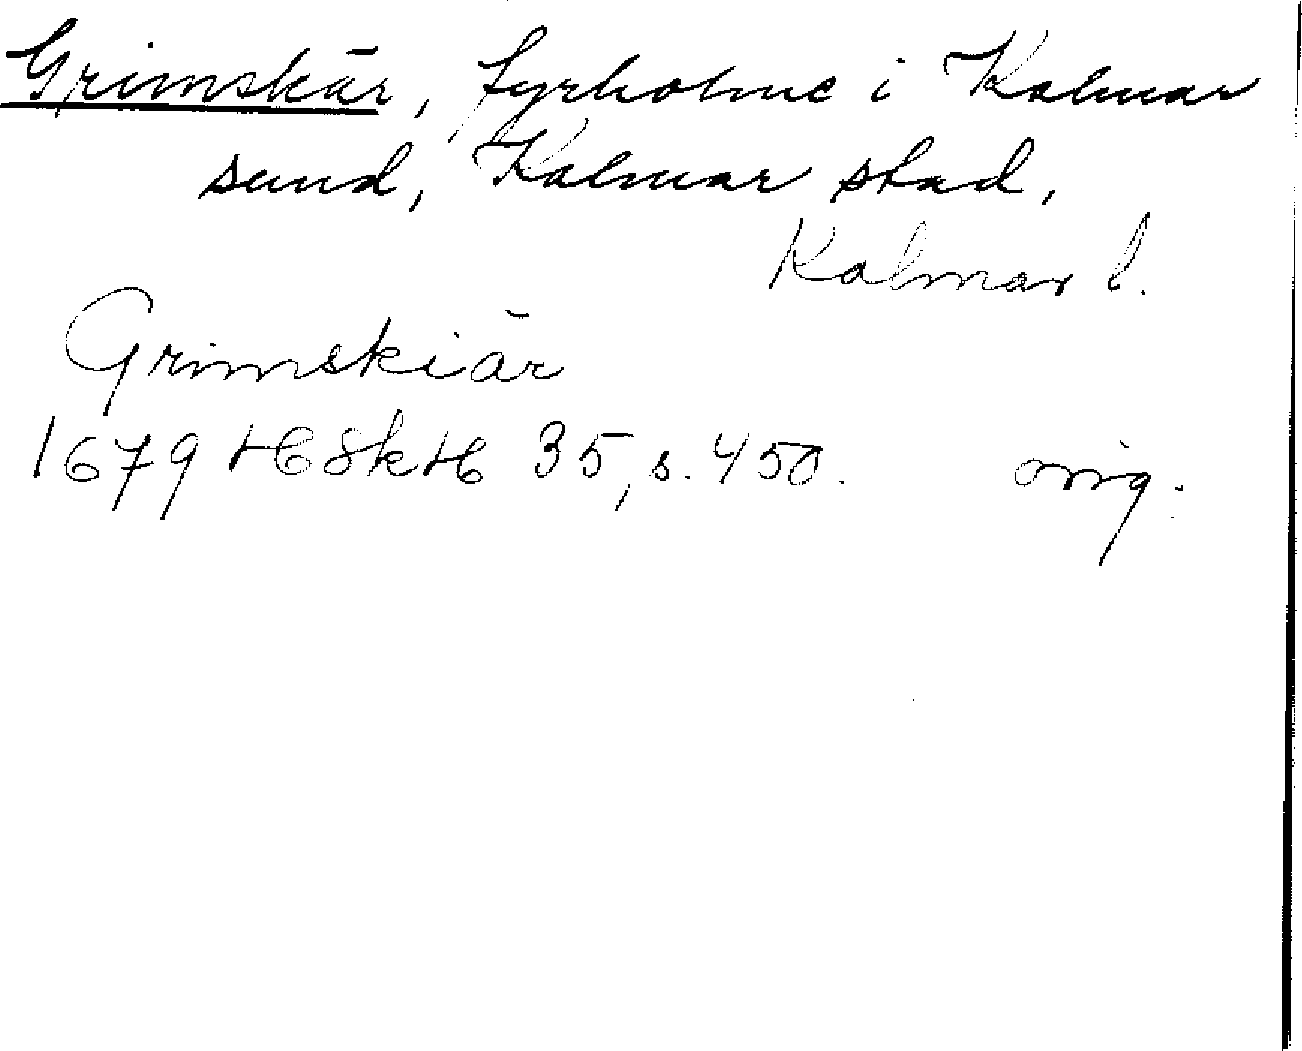 Grimskär, fyrholme i Kalmar
sund, Kalmar stad,
Kalmar l.
Grimskiär
1679 HSkH 35, s. 450. orig.